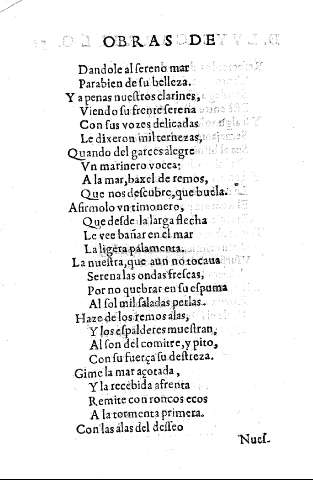 OBRAS DE
Dandole al sereno mar
Parabien de su belleza.
Y a penas nuestros clarines,
Viendo su frente serena
Con sus vozes delicadas
Le dixeron mil ternezas,
Quando del garces alegre
Vn marinero vocea:
A la mar, baxel de remos,
Que nos descubre, que buela.
Afirmolo vn timonero,
Que desde la larga flecha
Le vee bañar en el mar
La ligera palamenta.
La nuestra, que aun no tocaua
Serena las ondas frescas,
Por no quebrar en su espuma
Al sol mil saladas perlas.
Haze de los remos alas,
Y los espalderes muestran,
Al son del comitre, y pito,
Con su fuerça su destreza.
Gime la mar açotada,
Y la recebida afrenta
Remite con roncos ecos
A la tormenta primera.
Con las alas del desseo
Nues-